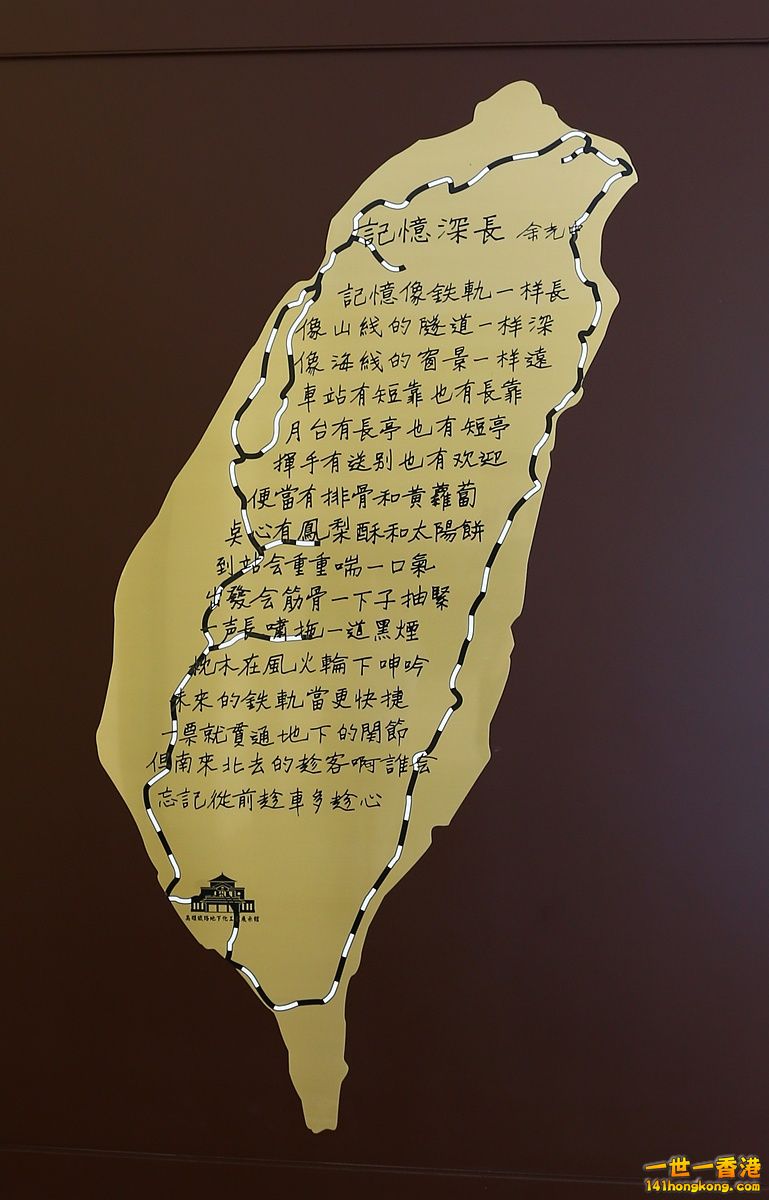 記憶深長 余光中
記憶像鉄軌一样長
像山线的隧道一样深
像海线的窗景一样遠
車站有短靠也有長靠
月台有長亭也有短亭
揮手有送别也有欢迎
便當有排骨和黃蘿蔔
奌心有鳳梨酥和太陽餅
到站会重重喘一口氣
出發会筋骨一下子抽緊
一声長嘯拖一道黑煙
枕木在風火輪下呻吟
未來的鉄軌當更快捷
一票就貫通地下的関節
但南來北去的趁客啊誰会
忘記從前趁車多趁心
高雄鐵路地下化工程展示館
一世一香港
141hongkong.com